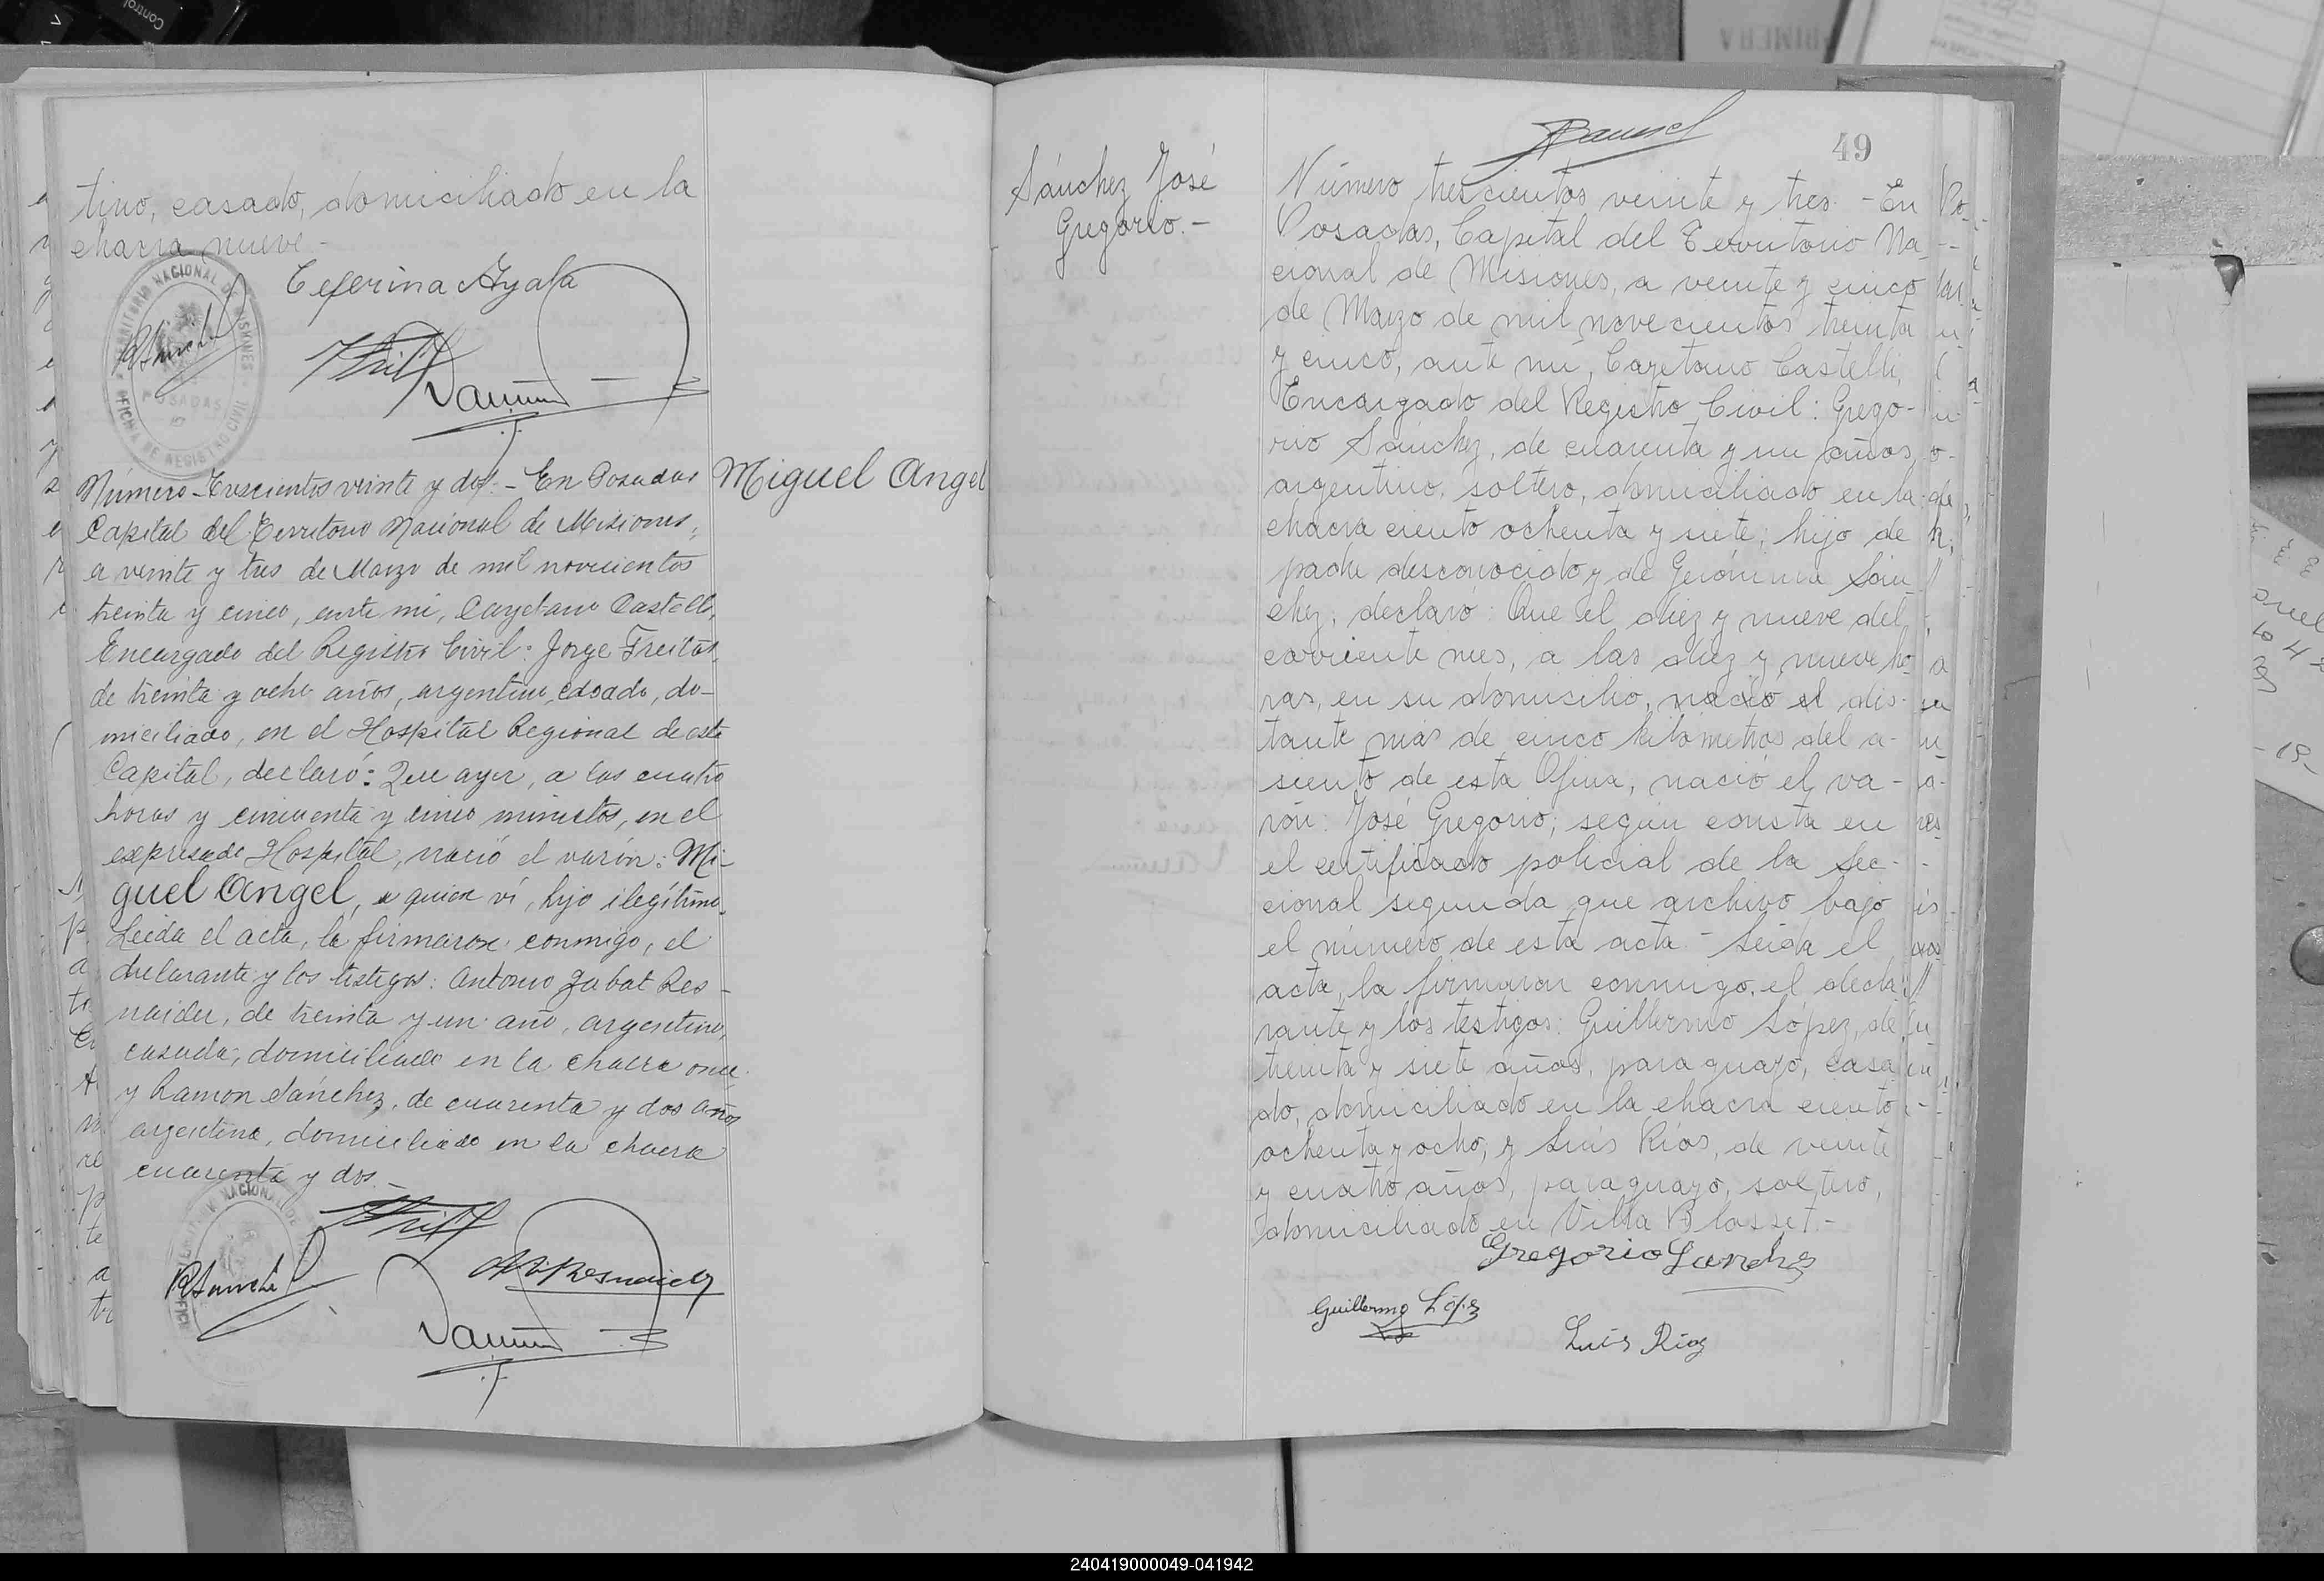 tino, casado, domiciliado en la
chacra nueve.-
Ceferina Ayala
TERRITORIO NACIONAL DE MISIONES
POSADAS
OFICINA DE REGISTRO CIVIL
Número Trescientos veinte y dos.- En Posadas
Capital del Territorio Nacional de Misiones,
a veinte y tres de Marzo de mil novecientos
treinta y cinco, ante mí, Cayetano Castelli,
Encargado del Registro Civil: Jorge Freitas,
de treinta y ocho años, argentino, casado, do-
miciliado, en el Hospital Regional de esta
Capital, declaró: Que ayer, a las cuatro
horas y cincuenta y cinco minutos, en el
expresado Hospital, nació el varón: Mi-
guel Angel, a quien ví, hijo ilegítimo.
Leída el acta, la firmaron conmigo, el
declarante y los testigos: Antonio Zabat Res-
naider, de treinta y un año, argentino,
casado, domiciliado en la chacra once
y Ramon Sánchez, de cuarenta y dos años
argentino, domiciliado en la chacra
cuarenta y dos.-
Miguel Angel
RSanchez
Sánchez José
Gregorio.-
49
Número trescientos veinte y tres.- En
Posadas, Capital del Territorio Na-
cional de Misiones, a veinte y cinco
de Marzo de mil novecientos treinta
y cinco, ante mí, Cayetano Castelli,
Encargado del Registro Civil: Grego-
rio Sánchez, de cuarenta y un años,
argentino, soltero, domiciliado en la
chacra ciento ochenta y siete; hijo de
padre desconocido y de Gerónima Sán
chez; declaró: Que el diez y nueve del
corriente mes, a las diez y nueve ho
ras, en su domicilio, nació el dis-
tante más de cinco kilómetros del a-
siento de esta Ofina, nació el va-
rón: José Gregorio; según consta en
el certificado policial de la Sec-
cional segunda que archivo bajo
el número de esta acta.- Leída el
acta, la firmaron conmigo, el decla
rante y los testigos: Guillermo López, de
treinta y siete años, paraguayo, casa
do, domiciliado en la chacra ciento
ochenta y ocho; y Luis Ríos, de veinte
y cuatro años, paraguayo, soltero,
domiciliado en Villa Blosset.-
Gregorio Sanchez
Guillermo López
Luis Rios
240419000049-041942